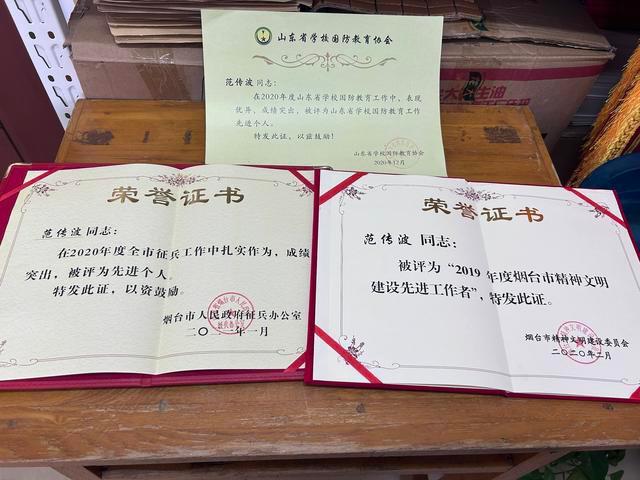 山东省学校国防教育协会
范传波同志：
在2020年度山东省学校国防教育工作中，表现
优异，成绩突出，被评为山东省学校国防教育工作
先进个人。
特发此证，以兹鼓励！
山东省学校国防教育协会
2020年12月
荣誉证书
范传波同志：
在2020年度全市征兵工作中扎实作为，成绩
突出，被评为先进个人。
特发此证，以资鼓励。
烟台市人民政府征兵办公室
二〇二一年一月
荣誉证书
范传波 同志：
被评为“2019年度烟台市精神文明
建设先进工作者”，特发此证。
烟台市精神文明建设委员会
二〇二〇年二月